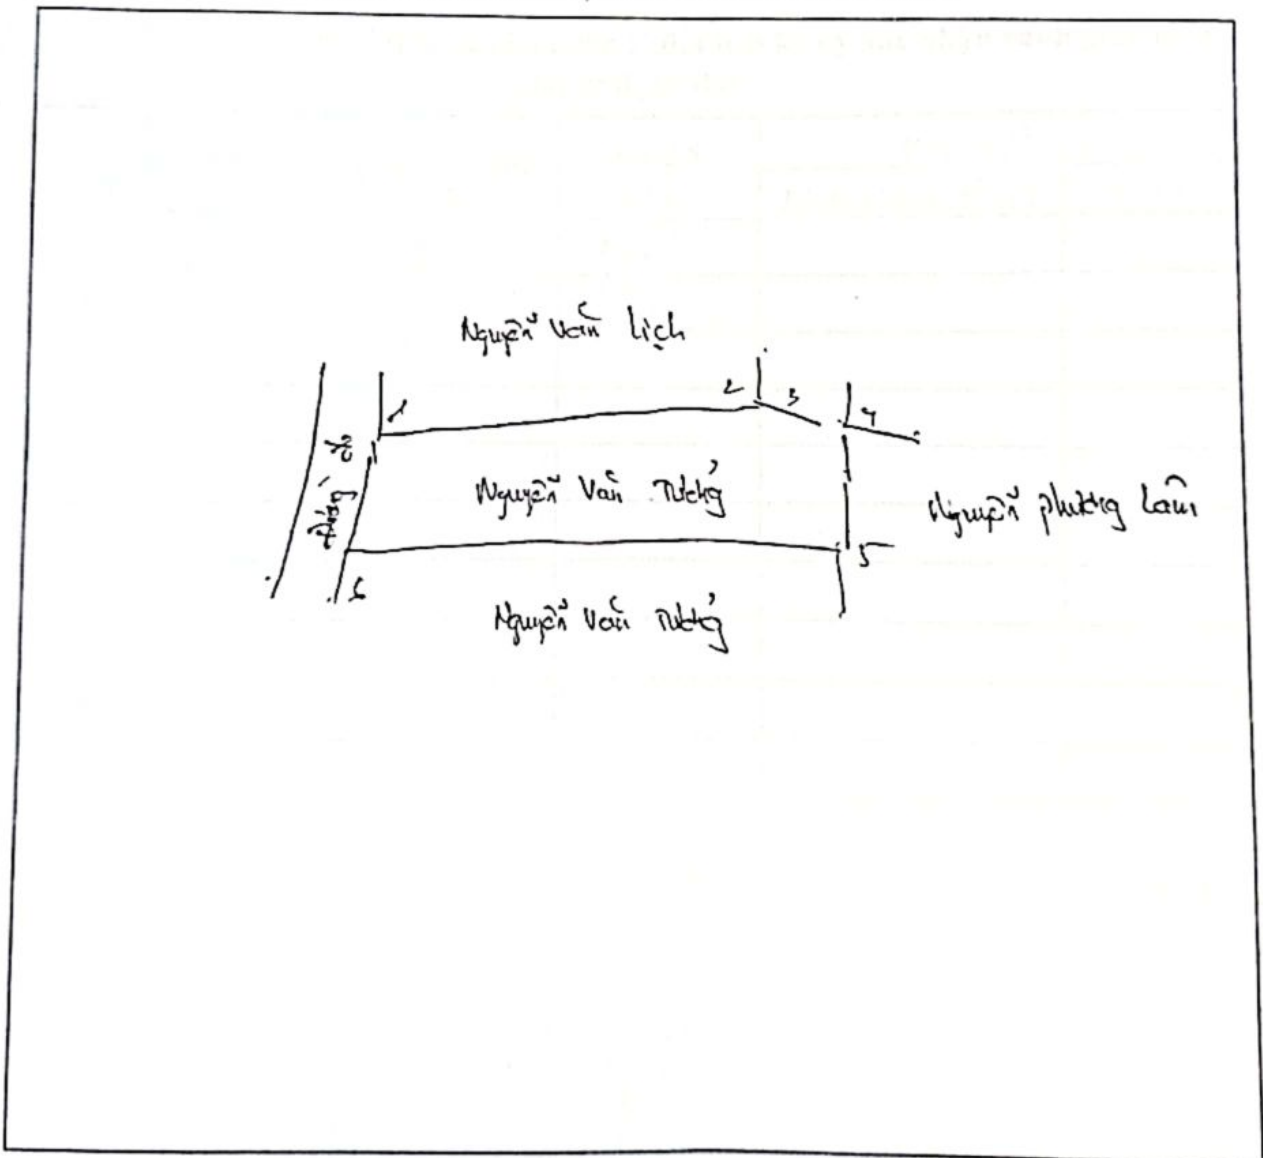 Nguyễn Văn Lịch
1
2
3
4
Đường
Nguyễn Văn Tưởng
Nguyễn Phương Lâm
5
6
Nguyễn Văn Tưởng